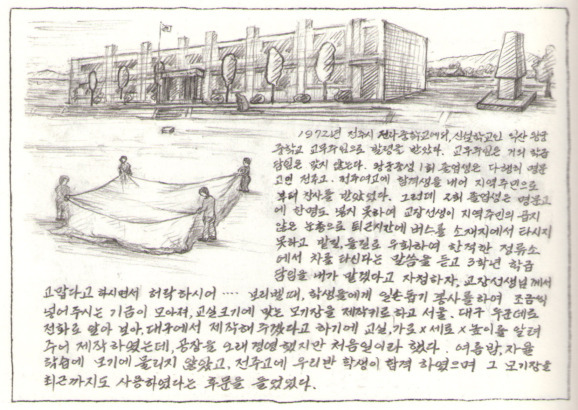 1972년 전주시 전라중학교에서, 신설학교인 익산 왕궁
중학교 교무주임으로 발령을 받았다. 교무주임은 거의 학급
담임은 맡지 않는다. 왕궁중엔 1회 졸업생은 다행히 명문
고인 전주고. 전주여고에 합격생을 내어 지역주민으로
부터 찬사를 받았었다. 그런데 2회 졸업생은 명문고
에 한명도 넣지 못하여 교장선생이 지역주민의 곱지
않은 눈총으로 퇴근시간에 버스를 소재지에서 타시지
못하고 밭길, 들길로 우회하여 한적한 정류소
에서 차를 타신다는 말씀을 듣고 3학년 학급
담임을 내가 맡겠다고 자청하자, 교장선생님께서
고맙다고 하시면서 허락하시어 .... 보리벨때, 학생들에게 일손돕기 봉사를 하여 조금씩
넣어주시는 기금이 모아져, 교실크기에 맞는 모기장을 제작키로 하고 서울. 대구 두군데로
전화로 알아 보아, 대구에서 제작해 주겠다고 하기에 교실, 가로×세로×높이를 알려
주어 제작 하였는데, 공장을 오래 경영했지만 처음일이라 했다. 여름밤, 자율
학습에 모기에 물리지 않았고, 전주고에 우리반 학생이 합격 하였으며 그 모기장을
최근까지도 사용하였다는 후문을 들었었다.